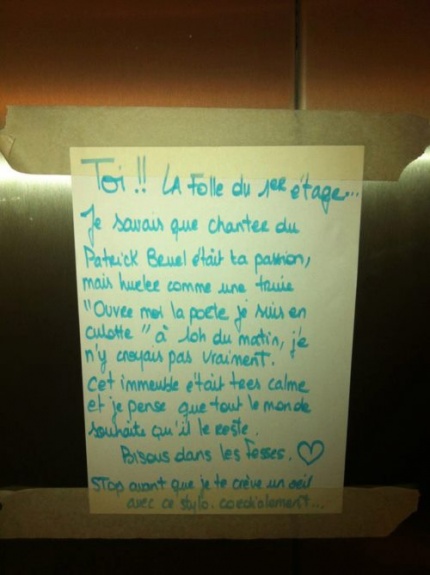 Toi !! LA Folle du 1er étage...
Je savais que chanter du
Patrick Bruel était ta passion,
mais hurler comme une truie
"Ouvre moi la porte je suis en
culotte" à 1oh du matin, j'e
n'y croyais pas vraiment.
Cet immeuble était très calme
et je pense que tout le monde
souhaite qu'il le reste.
Bisous dans les Fesses. ♡
STOP avant que je te crève un oeil
avec ce stylo. cordialement...